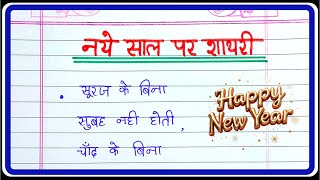 नये साल पर शायरी
सूरज के बिना
सुबह नही होती,
चाँद के बिना
Happy
New Year